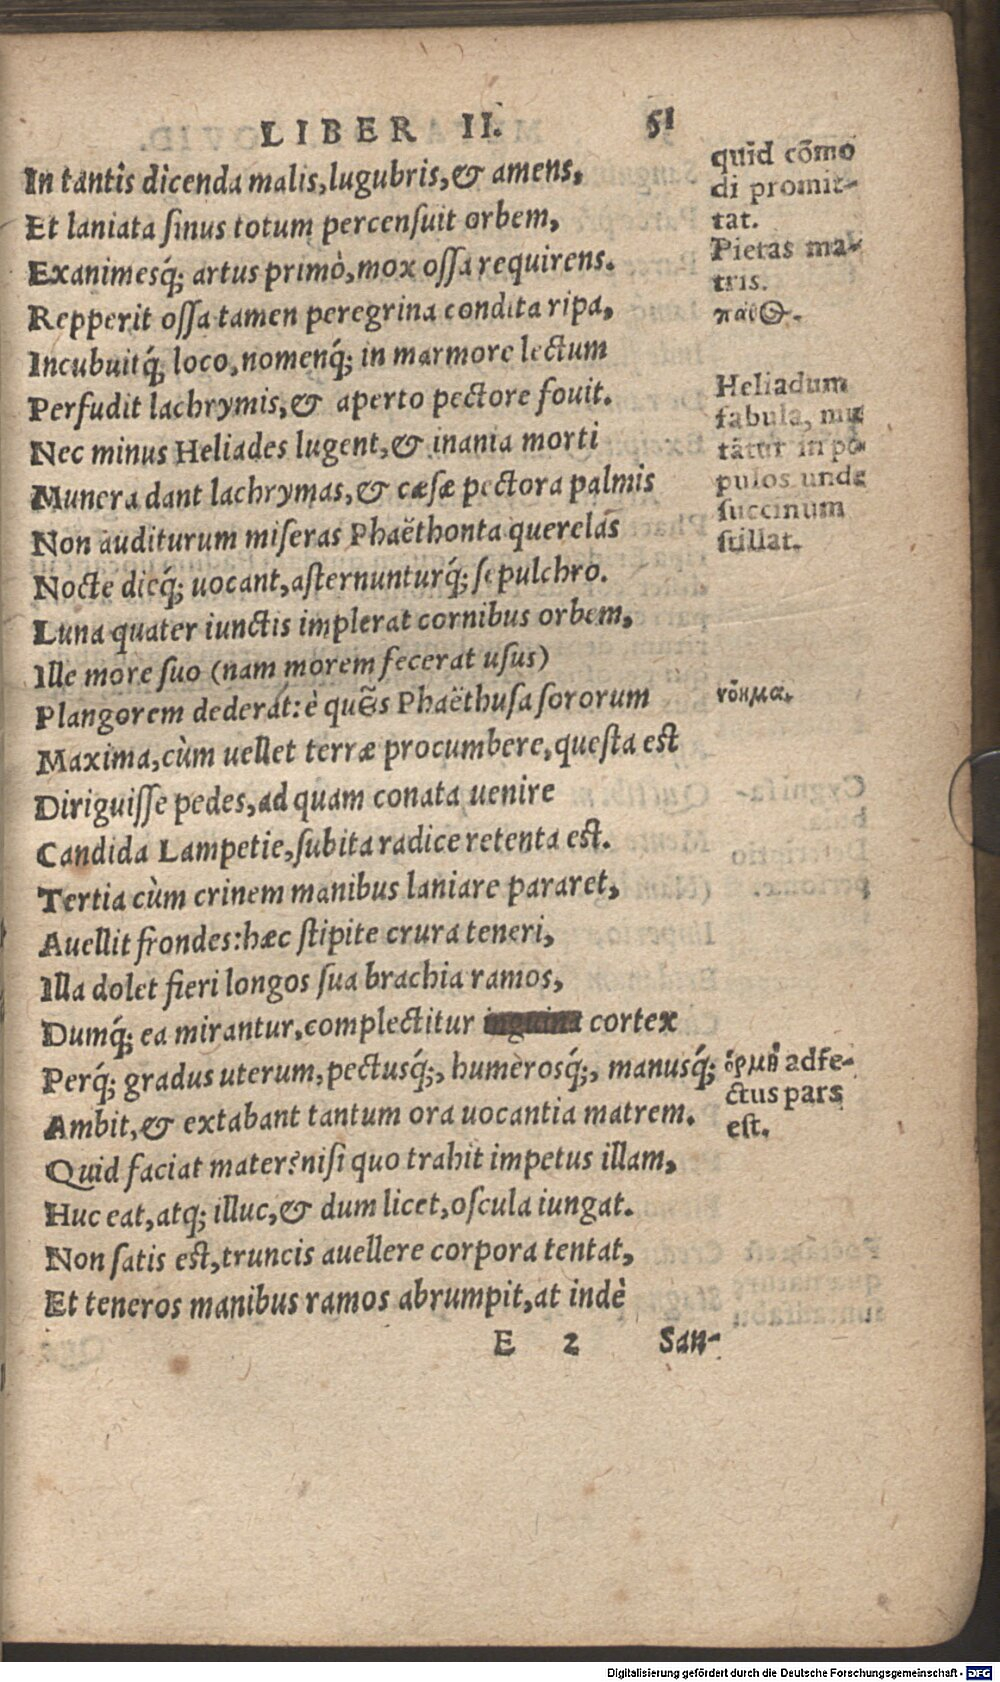 LIBER II. 51
In tantîs dicenda malis, lugubris, & amens,
Et laniata ſinus totum percenſuit orbem,
Exanimesq́; artus primò, mox oſſa requirens.
Repperit oſſa tamen peregrina condita ripa,
Incubuitq́, loco, nomenq́; in marmore lectum
Perfudit lachrymis, & aperto pectore fouit.
Nec minus Heliades lugent, & inania morti
Munera dant lachrymas, & cæſæ pectora palmis
Non auditurum miſeras Phaëthonta querelas
Nocte dieq́; uocant, aſternunturq́; ſepulchro.
Luna quater iunctis implerat cornibus orbem,
Ille more ſuo (nam morem fecerat uſus)
Plangorem dederát: è quẽis Phaëthuſa ſororum
Maxima, cùm uellet terræ procumbere, queſta eſt
Diriguiſſe pedes, ad quam conata uenire
Candida Lampetie, ſubita radice retenta eſt.
Tertia cùm crinem manibus laniare pararet,
Auellit frondes: hæc ſtipite crura teneri,
Illa dolet fieri longos ſua brachia ramos,
Dumq́; ea mirantur, complectitur cortex
Perq́; gradus uterum, pectusq́;, humerosq́;, manusq́;
Ambit, & extabant tantum ora uocantia matrem.
Quid faciat mater? niſi quo trahit impetus illam,
Huc eat, atq; illuc, & dum licet, oſcula iungat.
Non ſatis eſt, truncis auellere corpora tentat,
Et teneros manibus ramos abrumpit, at indè
E 2 San-
quid cõmo
di promit-
tat.
Pietas ma-
tris.
Heliadum
fabula, mu
tãtur in po
pulos unde
ſuccinum
ſtillat.
νόημα.
ὁρμὴ adfe-
ctus pars
eſt.
Digitalisierung gefördert durch die Deutsche Forschungsgemeinschaft - DFG